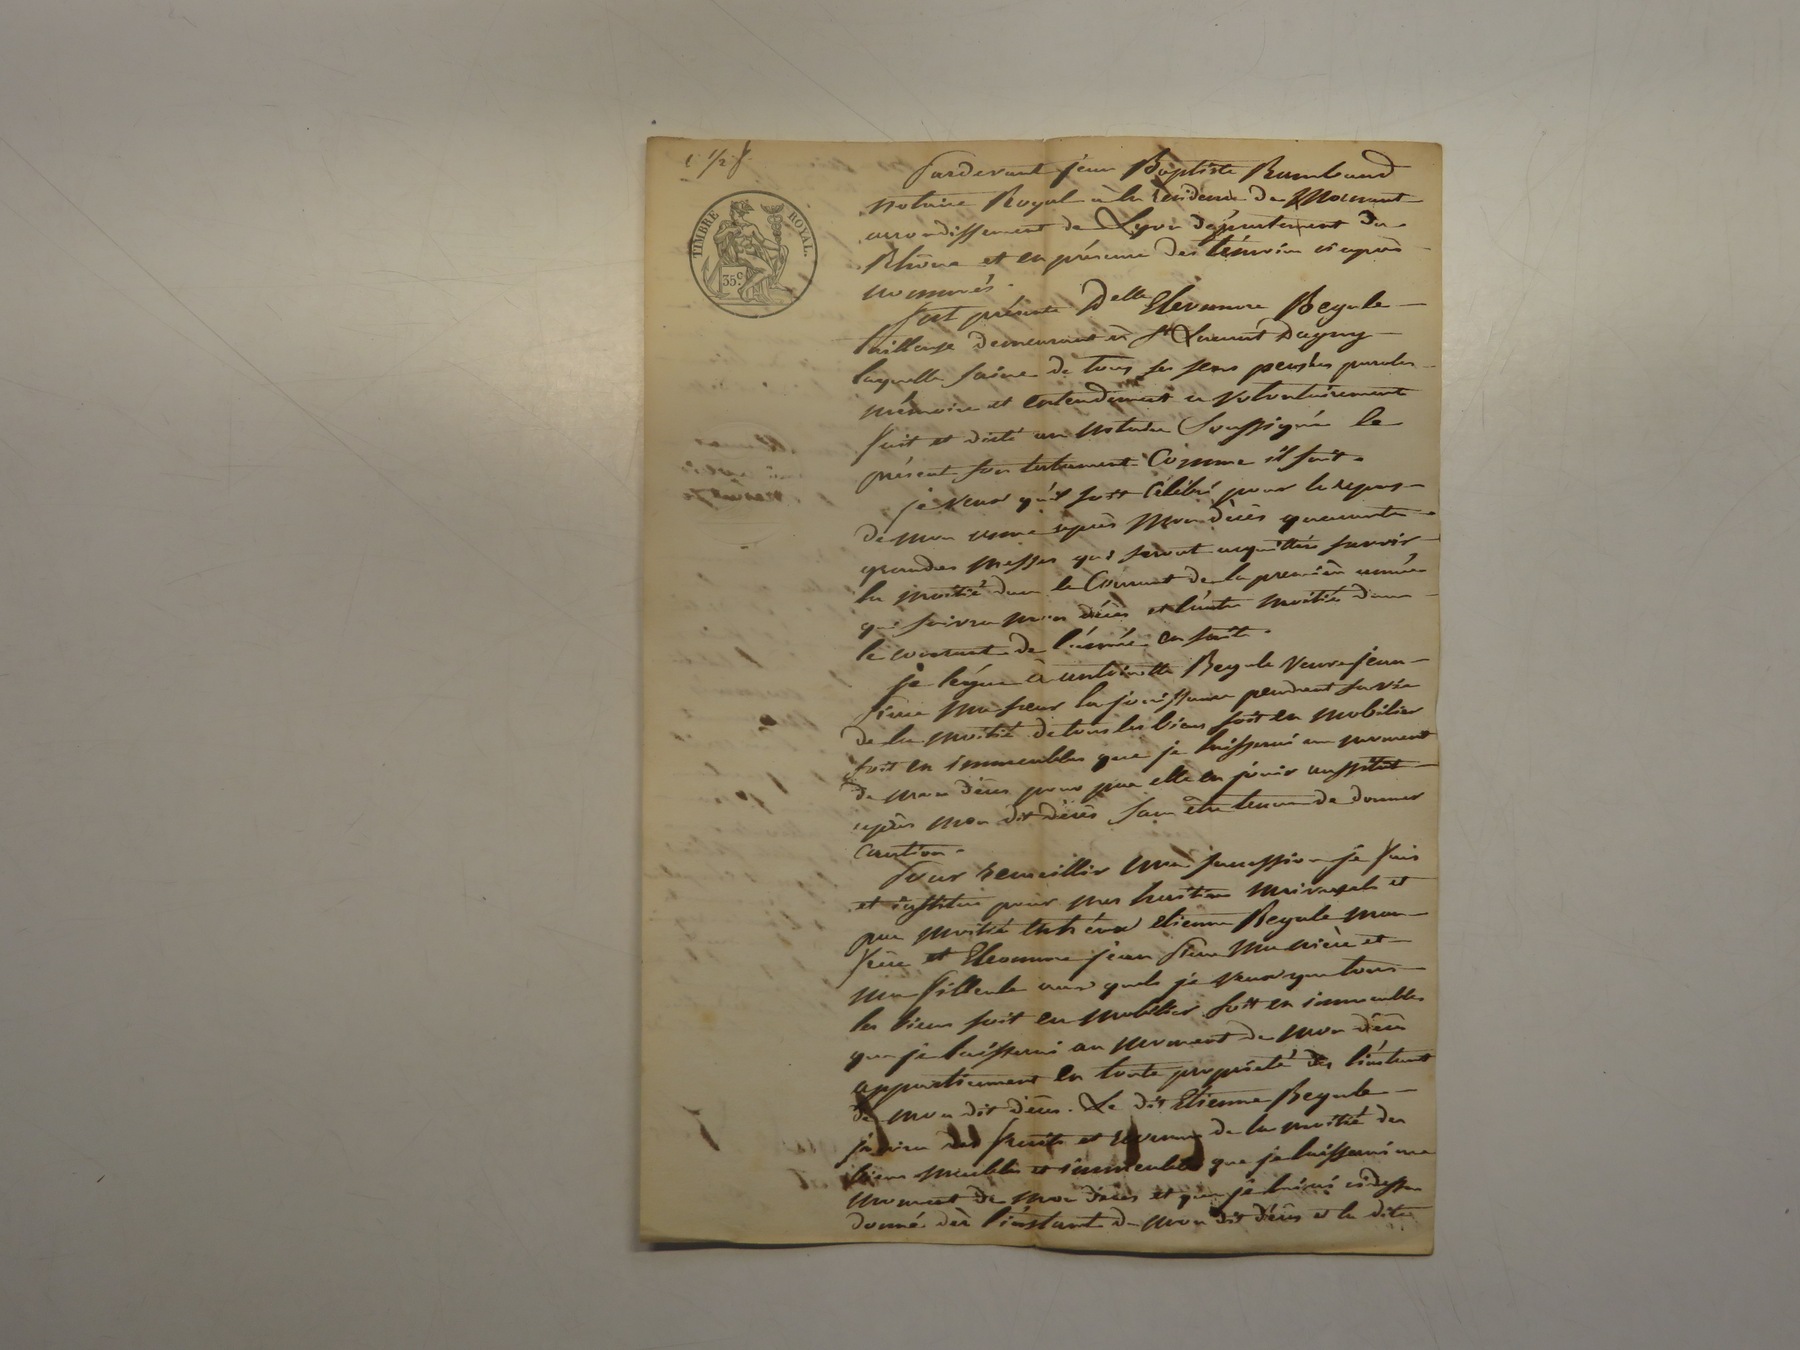 1 1/2 f
TIMBRE ROYAL.
35 c.
Pardevant jean Baptiste Rambaud
notaire Royal à la residence de Mornant
arrondissement de Lyon département du
Rhône et en présence des témoins ci après
nommés.
fut présente Delle Eleonore Begule
filleuse demeurant à St Laurent Dagny
laquelle saine de tous ses sens pensées paroles
mémoire et entendement a volontairement
fait et dicté au notaire soussigné le
présent son testament Comme il suit.
je veux qu'il soit célébré pour le repos
de mon ame après mon décès quarante
grandes messes qui seront acquittées savoir
la moitié dans le Courant de la première année
qui suivra mon décès et l'autre moitié dans
le courant de l'année en suite.
je légue à antoinette Begule veuve jean
ma sœur la jouissance pendant sa vie
de la moitié de tous les biens soit en mobilier
soit en immeubles que je laisserai au moment
de mon décès pour par elle en jouir aussitôt
après mon dit décès sans être tenue de donner
caution.
Pour recueillir ma succession je fais
et institue pour mes heritiers universels et
par moitié entr'eux etienne Begule mon
frère et Eleonore jean ma nièce et
ma filleule aux quels je veux que tous
les biens soit en mobilier soit en immeubles
que je laisserai au moment de mon décès
appartiennent en toute propriété dès l'instant
de mon dit décès. Le dit Etienne Begule
jouira des fruits et revenus de la moitié des
biens meubles et immeubles que je laisserai au
moment de mon décès et que je lui ai cidessus
donné dès l'instant de mon dit décès et la dite